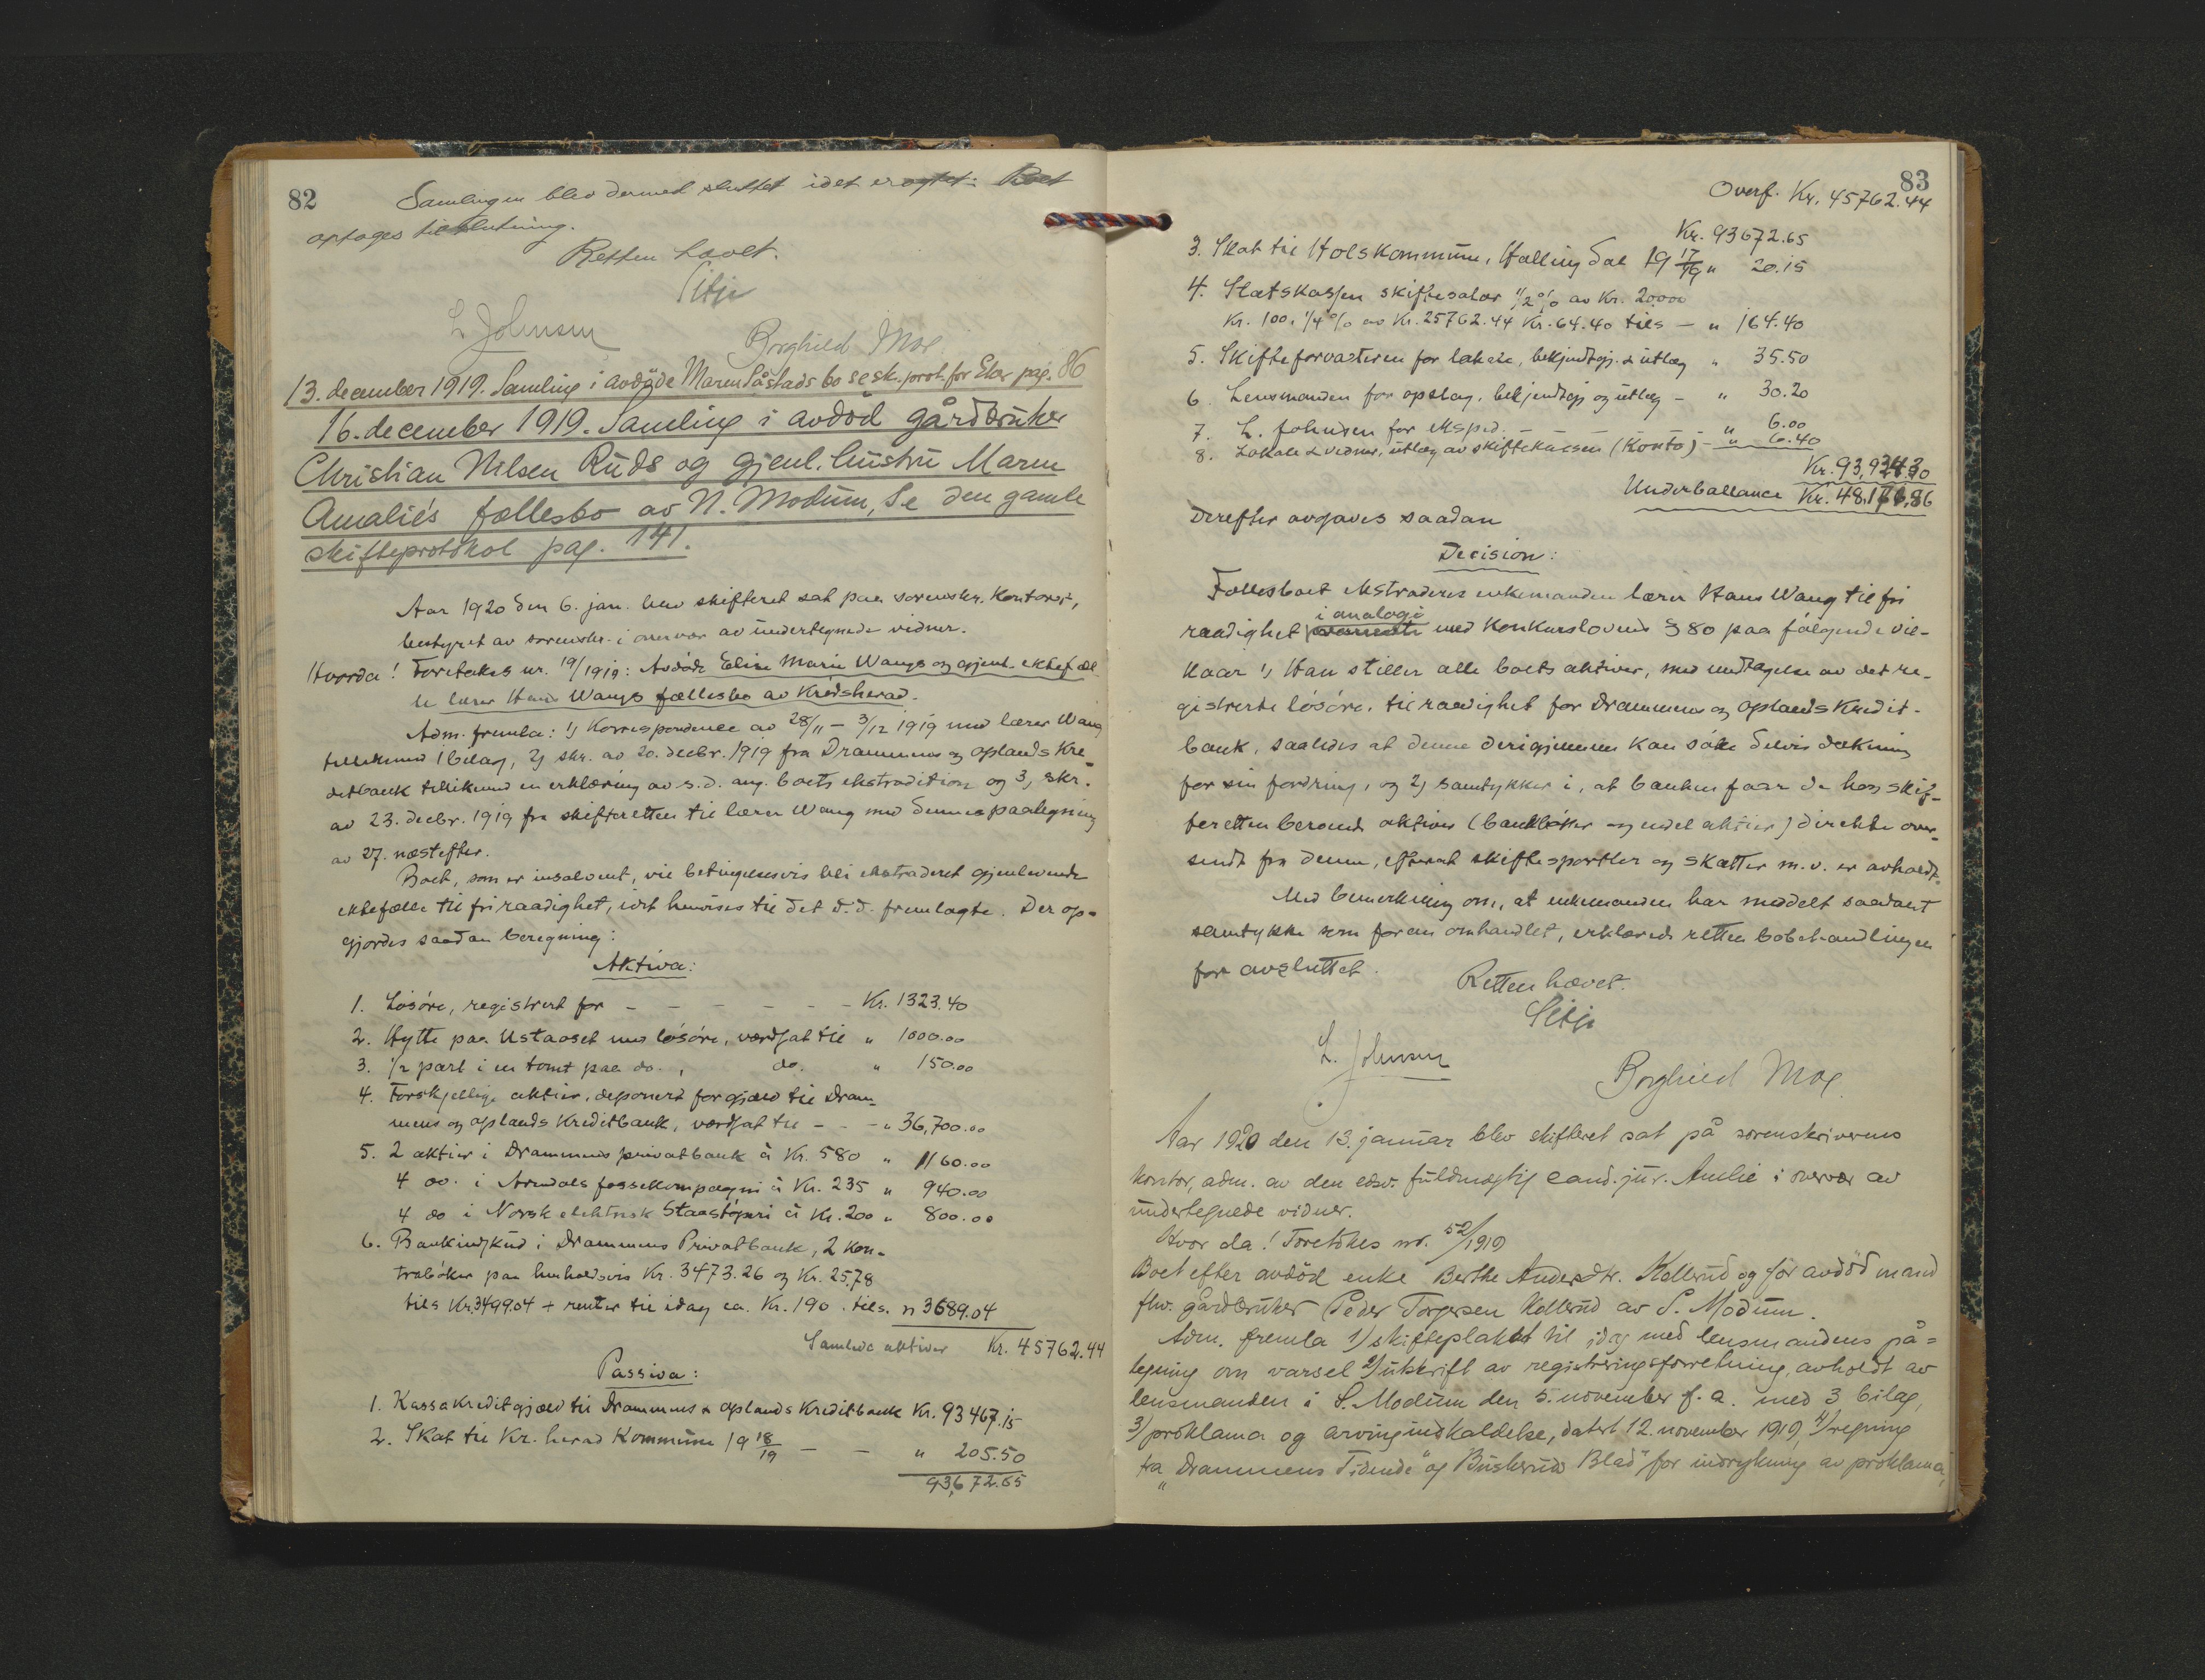 82
Samlingen blev dermed sluttet idet eragtet: Boet
optages til slutning.
Retten hævet.
L Johnsen
Borghild Moe
13. december 1919. Samling i avdøde Maren Såstads bo se sk. prot. for Eker pag. 86
16. december 1919. Samling i avdød gårdbruker
Christian Nilsen Ruds og gjenl. hustru Maren
Amalie's fællesbo av N. Modum, Se den gamle
skifteprotokol pag. 141.
Aar 1920 den 6. jan. blev skifteret sat paa sorenskr. kontoret,
bestyret av sorenskr. i overvær av undertegnede vidner.
Hvorda! Foretokes nr. 19/1919: Avdøde Elise Marie Wangs og gjenl. ektefæl-
le lærer Hans Wangs fællesbo av Krødsherad.
Adm. fremla: 1) Korrespondence av 28/11 – 3/12 1919 med lærer Wang
tillikemed 1 bilag, 2) skr. av 20. decbr. 1919 fra Drammens og Oplands Kre-
ditbank tillikemed en erklæring av s.d. ang. boets ekstradition og 3) skr.
av 23. decbr. 1919 fra skifteretten til lærer Wang med dennes paategning
av 27. næstefter.
Boet, som er insolvent, vil betingelsesvis bli ekstraderet gjenlevende
ektefælle til fri raadighet, idet henvises til det d.d. fremlagte. Der op-
gjordes saadan beregning:
Aktiva:
1. Løsøre, registrert for – – – – – – Kr. 1323.40
2. Hytte paa Ustaoset med løsøre, værdsat til " 1000.00
3. 1/2 part i en tomt paa do. , do. " 150.00
4. Forskjellige aktier, deponert for gjæld til Dram-
mens og Oplands Kreditbank, værdsat til – – – " 36,700.00
5. 2 aktier i Drammens privatbank à Kr. 580 " 1160.00
4 do. i Arendals fossekompagni à Kr. 235 " 940.00
4 do i Norsk elektrisk Staalstøperi à Kr. 200 " 800.00
6. Bankindskud i Drammens Privatbank, 2 kon-
trabøker paa henholdsvis Kr. 3473.26 og Kr. 25.78
tils Kr. 3499.04 + renter til idag ca. Kr. 190. tils. " 3689.04
Samlede aktiver Kr. 45762.44
Passiva:
1. Kassakreditgjæld til Drammens & Oplands Kreditbank Kr. 93467.15
2. Skat til Kr. herad Kommune 19 18/19 – – " 205.50
93,672.65
83
Overf. Kr. 45762.44
Kr. 93672.65
3. Skat til Hols Kommune, Hallingdal 19 17/19 " 20.15
4. Statskassen skiftesalær 1/2 % av Kr. 20000
Kr. 100, 1/4 % av Kr. 25762.44 Kr. 64.40 tils – " 164.40
5. Skifteforvalteren for lokale, bekjendtgj. & utlæg " 35.50
6. Lensmanden for opslag, bekjendtgj og utlæg – " 30.20
7. L. Johnsen for eksped. – – – " 6.00
8. Lokale & vidner, utlæg av skiftekassen (Konto) – " 6.40
Underballance
Derefter avgaves saadan
Decision:
Fællesboet ekstraderes enkemanden lærer Hans Wang til fri
i analogi
raadighet med Konkurslovens § 80 paa følgende vil-
kaar 1) Han stiller alle boets aktiver, med undtagelse av det re-
gistrerte løsøre, til raadighet for Drammens og Oplands Kredit-
bank, saaledes at denne derigjennem kan søke delvis dækning
for sin fordring, og 2) samtykker i, at banken faar de hos skif-
teretten beroende aktiver (bankbøker og endel aktier) direkte over-
sendt fra denne, efterat skiftesportler og skatter m.v. er avholdt.
Med bemerkning om, at enkemanden har meddelt saadant
samtykke som foran omhandlet, erklæredes retten bobehandlingen
for avsluttet.
Retten hævet.
L. Johnsen
Borghild Moe
Aar 1920 den 13. januar blev skifteret sat på sorenskriverens
kontor, adm. av den edsv. fuldmægtig cand. jur. Amlie i overvær av
undertegnede vidner.
Hvor da! Foretokes nr. 52/1919
Boet efter avdød enke Berthe Andersdtr. Kolterud og før avdød mand
fhv. gårdbruker Peder Torgersen Kolterud av S. Modum.
Adm. fremla 1) skifteplakat til idag med lensmandens på-
tegning om varsel 2) utskrift av registreringsforretning, avholdt av
lensmanden i S. Modum den 5. november f. a. med 3 bilag,
3) proklama og arvingindkaldelse, datert 12. november 1919, 4) regning
fra „Drammens Tidende" og Buskeruds Blad" for indrykning av proklama,